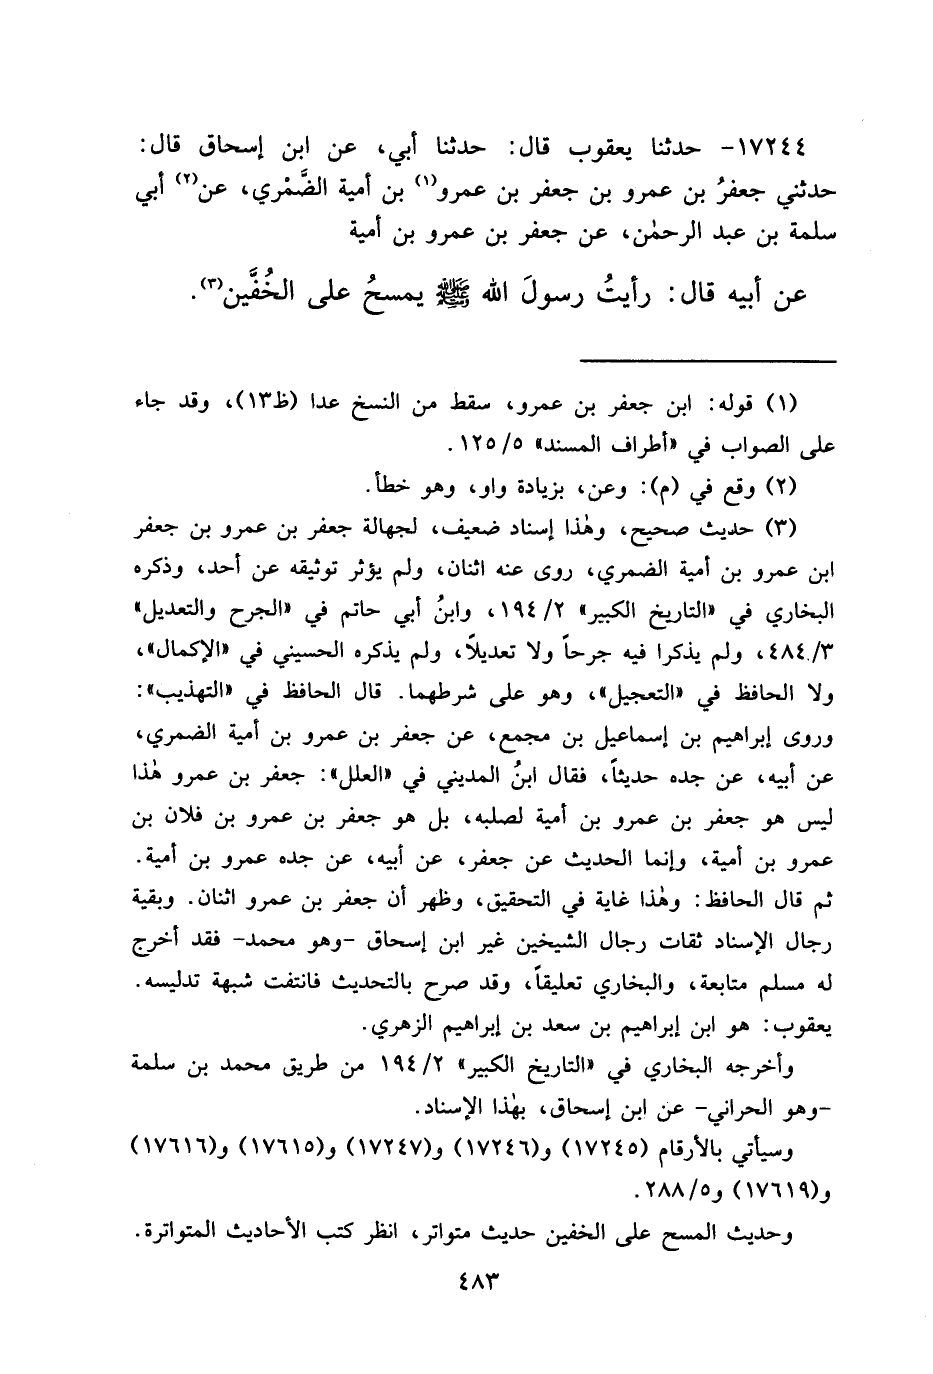 ١٧٢٤٤- حدثنا يعقوب قال: حدثنا أبي، عن ابن إسحاق قال:
حدثني جعفرُ بن عمرو بن جعفر بن عمرو(١) بن أمية الضَّمْري، عن(٢) أبي
سلمة بن عبد الرحمٰن، عن جعفر بن عمرو بن أمية
عن أبيه قال: رأيتُ رسولَ الله ﷺ يمسحُ على الخُفَّين(٣).
(١) قوله: ابن جعفر بن عمرو، سقط من النسخ عدا (ظ١٣)، وقد جاء
على الصواب في «أطراف المسند» ١٢٥/٥.
(٢) وقع في (م): وعن، بزيادة واو، وهو خطأ.
(٣) حديث صحيح، وهٰذا إسناد ضعيف، لجهالة جعفر بن عمرو بن جعفر
ابن عمرو بن أمية الضمري، روى عنه اثنان، ولم يؤثر توثيقه عن أحد، وذكره
البخاري في «التاريخ الكبير» ١٩٤/٢، وابنُ أبي حاتم في «الجرح والتعديل»
٤٨٤/٣، ولم يذكرا فيه جرحاً ولا تعديلاً، ولم يذكره الحسيني في «الإكمال»،
ولا الحافظ في «التعجيل»، وهو على شرطهما. قال الحافظ في «التهذيب»:
وروى إبراهيم بن إسماعيل بن مجمع، عن جعفر بن عمرو بن أمية الضمري،
عن أبيه، عن جده حديثاً، فقال ابنُ المديني في «العلل»: جعفر بن عمرو هٰذا
ليس هو جعفر بن عمرو بن أمية لصلبه، بل هو جعفر بن عمرو بن فلان بن
عمرو بن أمية، وإنما الحديث عن جعفر، عن أبيه، عن جده عمرو بن أمية.
ثم قال الحافظ: وهٰذا غاية في التحقيق، وظهر أن جعفر بن عمرو اثنان. وبقية
رجال الإسناد ثقات رجال الشيخين غير ابن إسحاق -وهو محمد- فقد أخرج
له مسلم متابعة، والبخاري تعليقاً، وقد صرح بالتحديث فانتفت شبهة تدليسه.
يعقوب: هو ابن إبراهيم بن سعد بن إبراهيم الزهري.
وأخرجه البخاري في «التاريخ الكبير» ١٩٤/٢ من طريق محمد بن سلمة
-وهو الحراني- عن ابن إسحاق، بهٰذا الإسناد.
وسيأتي بالأرقام (١٧٢٤٥) و(١٧٢٤٦) و(١٧٢٤٧) و(١٧٦١٥) و(١٧٦١٦)
و(١٧٦١٩) و٢٨٨/٥.
وحديث المسح على الخفين حديث متواتر، انظر كتب الأحاديث المتواترة.
٤٨٣